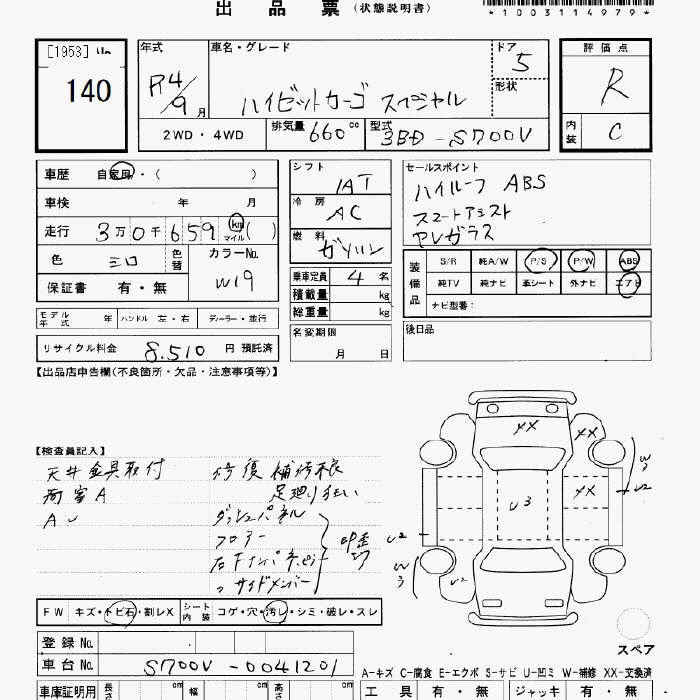 出 品 票 (状態説明書)
*1003114979*
[1953]
140
年式 R4/9 月
車名・グレード ハイゼットカーゴ スペシャル
ドア 5
形状
2WD・4WD
排気量 660 cc
型式 3BD-S700V
評価点 R
内装 C
車歴 自家用・( )
車検 年 月
走行 3万0千659 km マイル ( )
色 シロ 色替
カラーNo. W19
保証書 有・無
シフト IAT
冷房 AC
燃料 ガソリン
乗車定員 4 名
積載量 kg
総重量 kg
名変期限 月 日
セールスポイント
ハイルーフ ABS
スマートアシスト
PVガラス
装備品
S/R 純A/W P/S P/W ABS
純TV 純ナビ 革シート 外ナビ エアB
ナビ型番:
後日品
モデル年式 年 ハンドル 左・右 ディーラー・並行
リサイクル料金 8,510 円 預託済
【出品店申告欄(不良箇所・欠品・注意事項等)】
【検査員記入】
天井金具取付 修復 補修痕
雨害A 足廻り
A ダッシュパネル
フロアー
右
サイドメンバー
U3
XX
XX
XX
U2
W3
U2
W3
U2
FW キズ・トビ石・割レX
シート内装 コゲ・穴・汚レ・シミ・破レ・スレ
登録 No.
車台 No. S700V-0041201
スペア
A-キズ C-腐食 E-エクボ S-サビ U-凹ミ W-補修 XX-交換済
車庫証明用 長さ cm 幅 cm 高さ cm
工具 有・無 ジャッキ 有・無